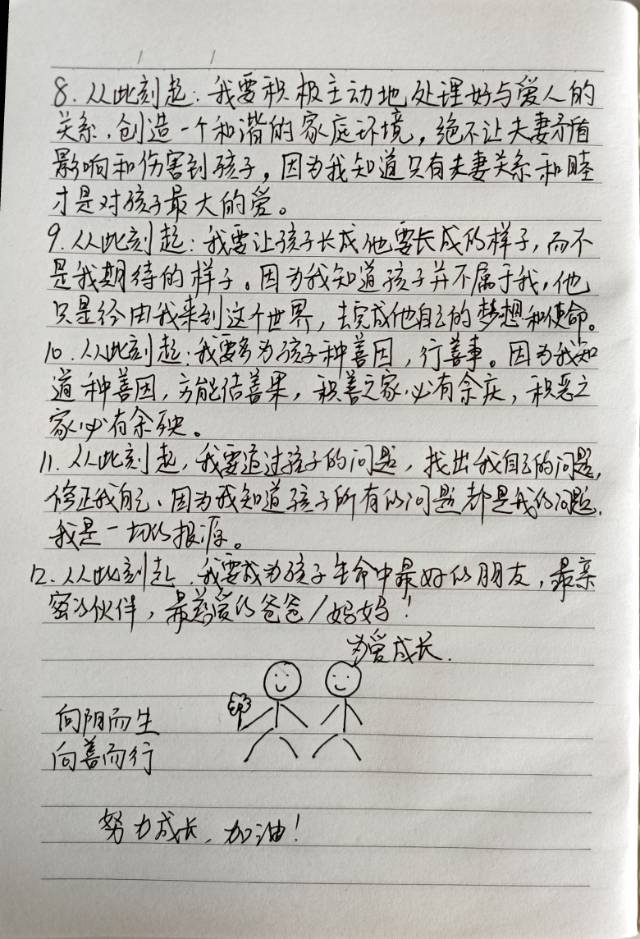 8. 从此刻起：我要积极主动地处理好与爱人的
关系，创造一个和谐的家庭环境，绝不让夫妻矛盾
影响和伤害到孩子，因为我知道只有夫妻关系和睦
才是对孩子最大的爱。
9. 从此刻起：我要让孩子长成他要长成的样子，而不
是我期待的样子。因为我知道孩子并不属于我，他
只是经由我来到这个世界，去完成他自己的梦想和使命。
10. 从此刻起：我要多为孩子种善因，行善事。因为我知
道种善因，方能结善果，积善之家必有余庆，积恶之
家必有余殃。
11. 从此刻起，我要透过孩子的问题，找出我自己的问题，
修正我自己、因为我知道孩子所有的问题都是我的问题，
我是一切的根源。
12. 从此刻起，我要成为孩子生命中最好的朋友，最亲
密的伙伴，最慈爱的爸爸/妈妈！
为爱成长.
向阴而生
向善而行
努力成长，加油！